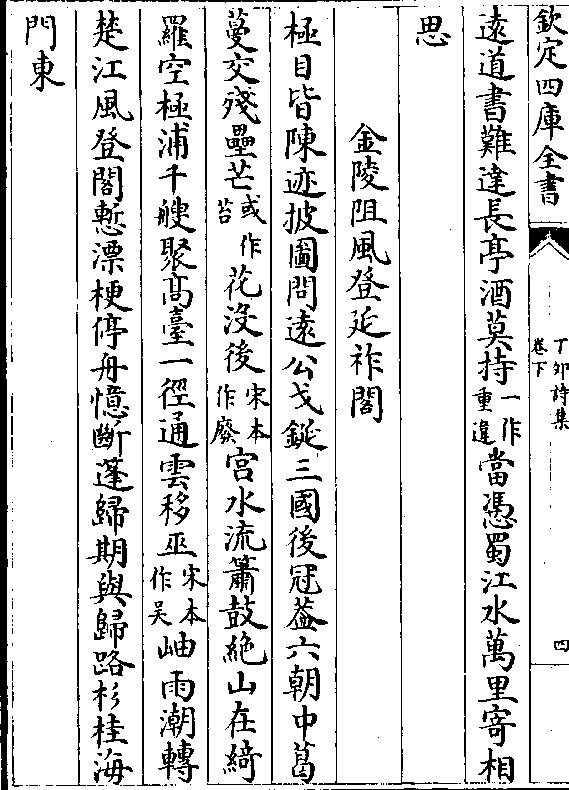 欽定四庫全書
丁卯詩集
卷下
四
遠道書難達長亭酒莫持一作重違當憑蜀江水萬里寄相
思
金陵阻風登延祚閣
極目皆陳迹披圖問遠公戈鋋三國後冠葢六朝中葛
蔓交殘壘芒或作苔花沒後宋本作廢宫水流簫鼓絶山在綺
羅空極浦千艘聚髙臺一徑通雲移巫宋本作吴岫雨潮轉
楚江風登閣慙漂梗停舟憶斷蓬歸期與歸路杉桂海
門東